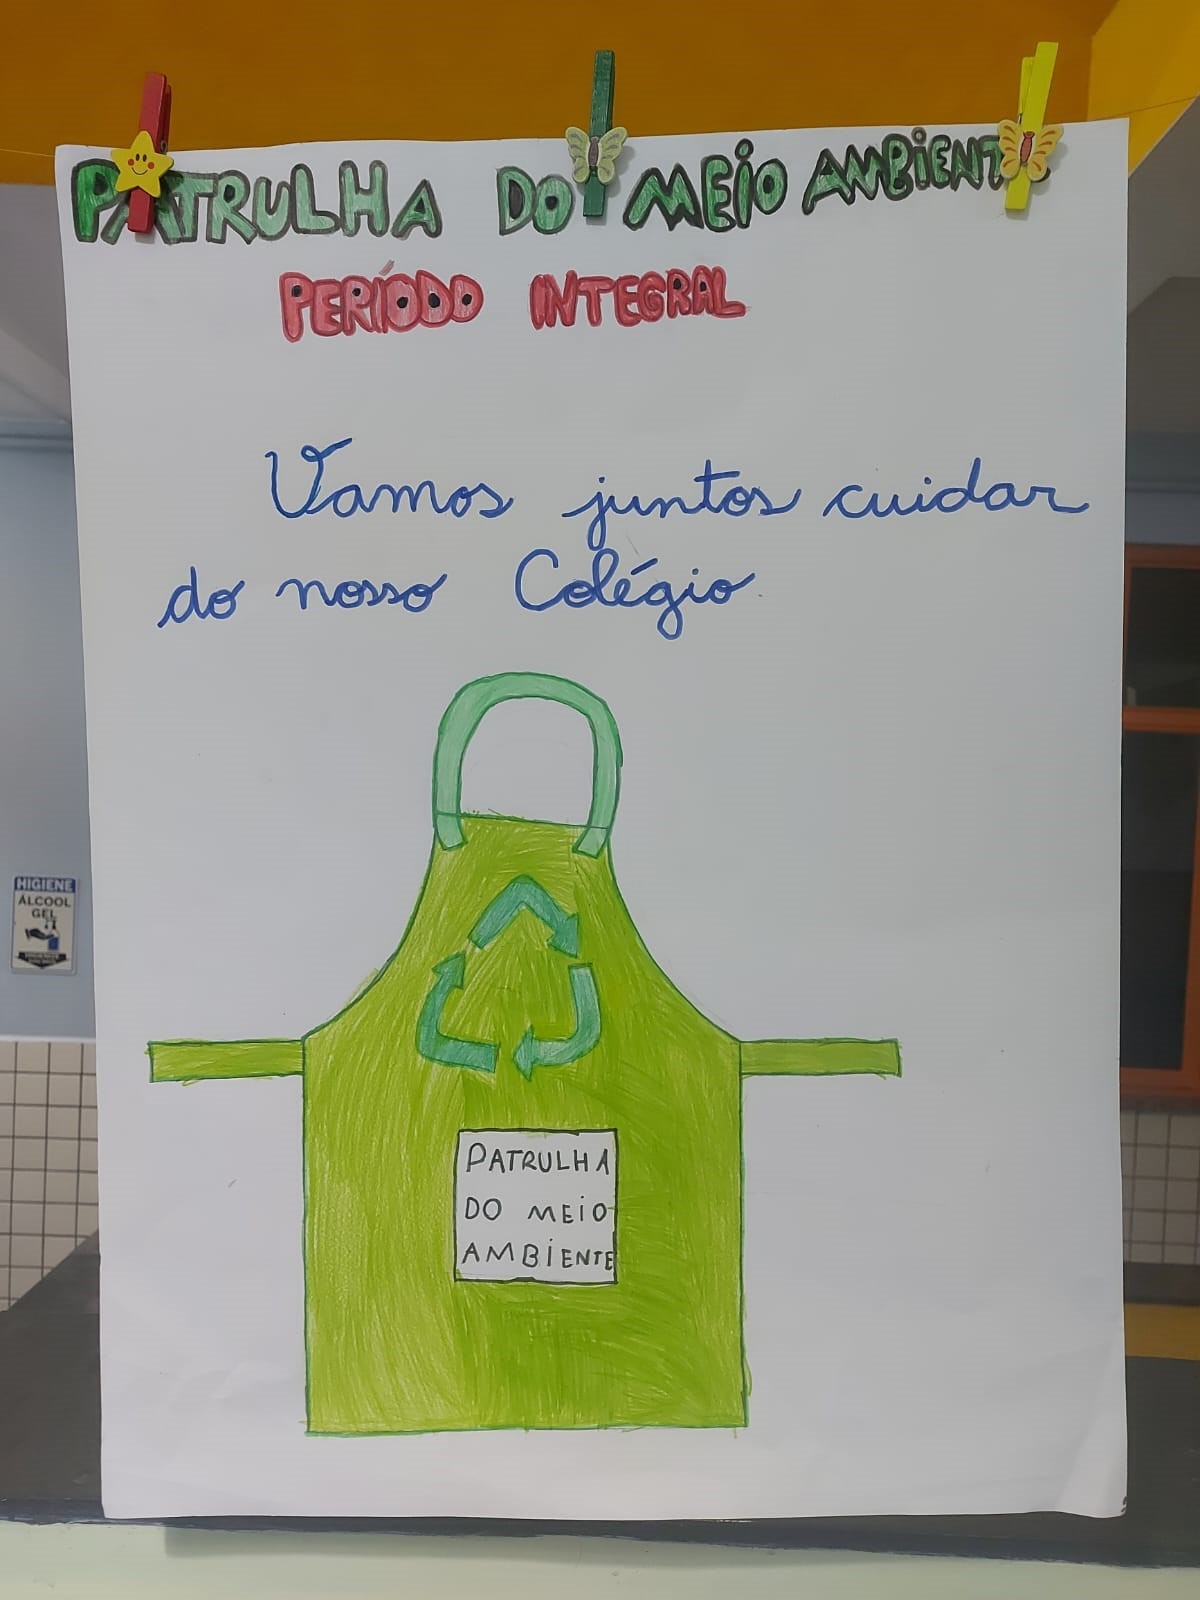 PATRULHA DO MEIO AMBIENTE
PERÍODO INTEGRAL
Vamos juntos cuidar
do nosso Colégio
HIGIENE
ÁLCOOL
GEL
PATRULHA
DO MEIO
AMBIENTE